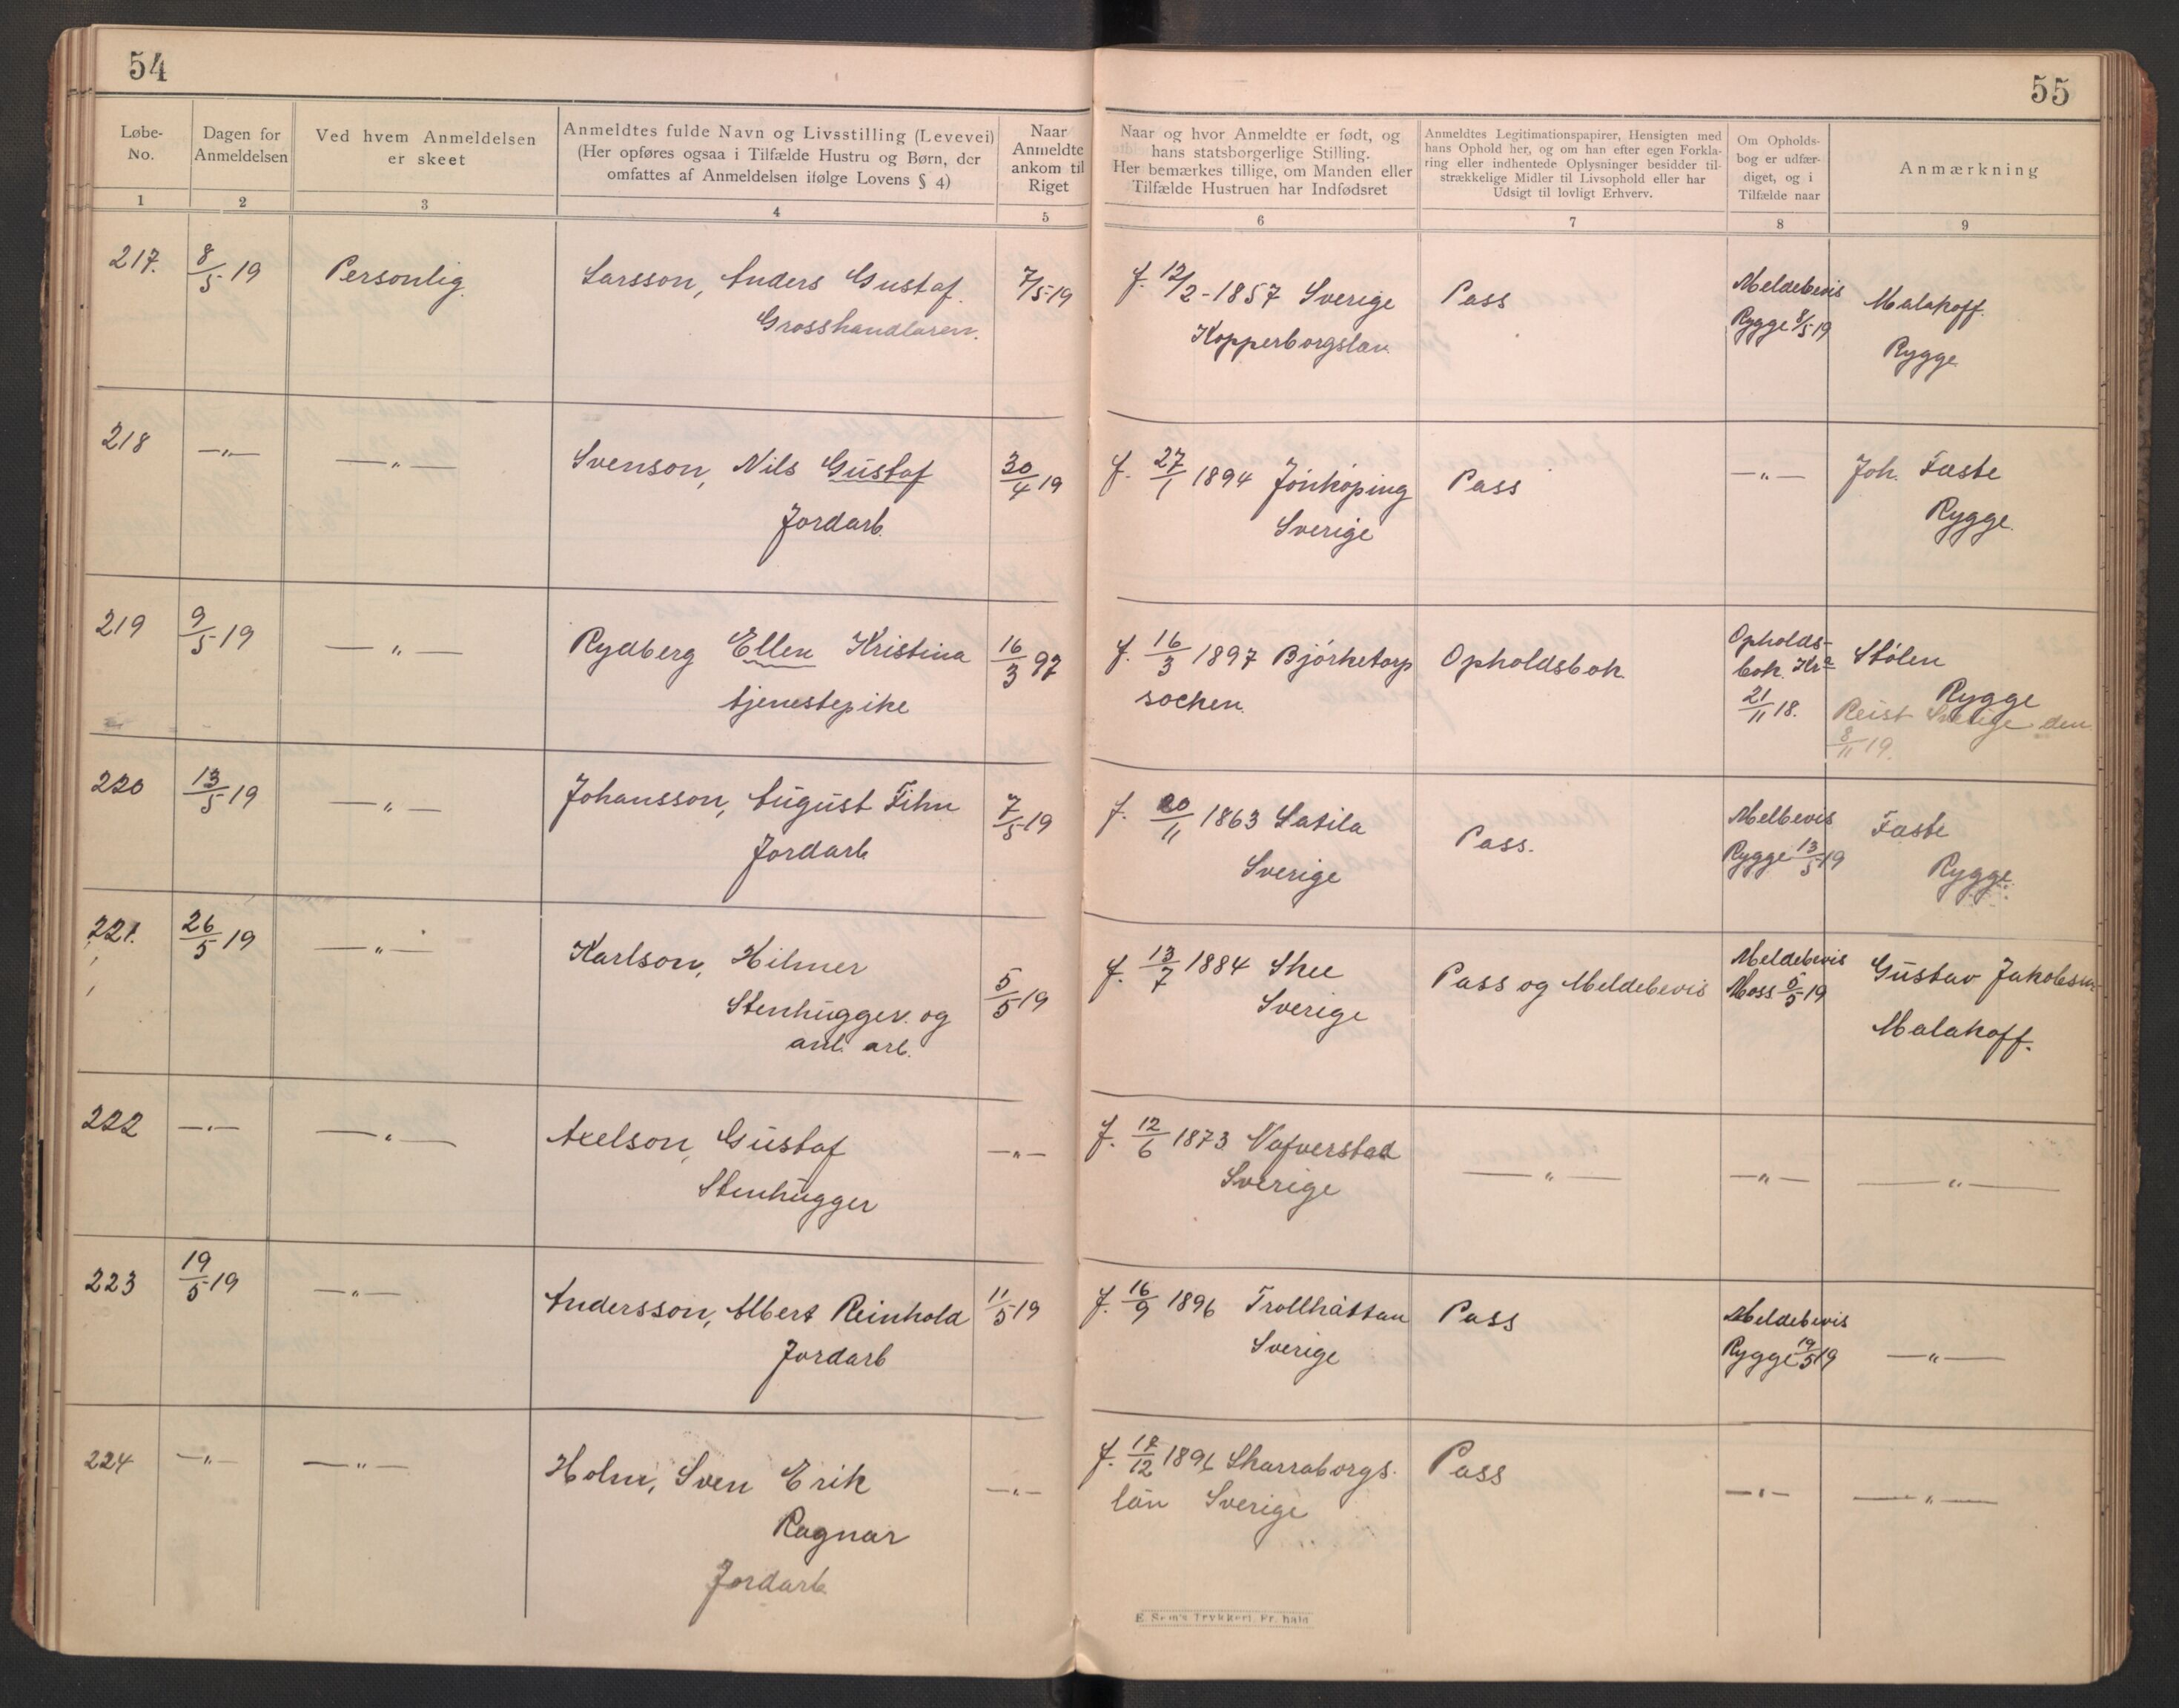 54
55
Løbe-
No.
Dagen for
Anmeldelsen
Ved hvem Anmeldelsen
er skeet
Anmeldtes fulde Navn og Livsstilling (Levevei)
(Her opføres ogsaa i Tilfælde Hustru og Børn, der
omfattes af Anmeldelsen ifølge Lovens § 4)
Naar
Anmeldte
ankom til
Riget
Naar og hvor Anmeldte er født, og
hans statsborgerlige Stilling.
Her bemærkes tillige, om Manden eller
Tilfælde Hustruen har Indfødsret
Anmeldtes Legitimationspapirer, Hensigten med
hans Ophold her, og om han efter egen Forkla-
ring eller indhentede Oplysninger besidder til-
strækkelige Midler til Livsophold eller har
Udsigt til lovligt Erhverv.
Om Opholds-
bog er udfær-
diget, og i
Tilfælde naar
Anmærkning
1 2 3 4 5 6 7 8 9
217. 8/5 19 Personlig. Larsson, Anders Gustaf. 7/5-19 f. 12/2-1857 Sverige Pass Meldebevis Malakoff.
Grosshandlaren. Kopperborgslän Rygge 8/5 19 Rygge
218 —„— —„— Svenson, Nils Gustaf 30/4 19 f. 27/1 1894 Jönköping Pass —„— Joh. Faste
Jordarb. Sverige Rygge.
219 9/5 19 —„— Rydberg Ellen Kristina 16/3 97 f. 16/3 1897 Björketorp Opholdsbok. Opholds- Stölen
tjenestepike socken. bok. Kra Rygge
21/11 18. Reist Sverige den
8/11 19.
220 13/5 19 —„— Johansson, August Fihn 7/5 19 f. 20/11 1863 Satila Pass. Melbevis Faste
Jordarb Sverige Rygge 13/5 19 Rygge.
221. 26/5 19 —„— Karlson, Hilmer 5/5 19 f. 13/7 1884 Skee Pass og Meldebevis Meldebevis Gustav Jakobsen
Stenhugger. og Sverige Moss 5/5 19 Malakoff.
anl. arb.
222 —„— —„— Axelson, Gustaf —„— f. 12/6 1873 Nafverstad —„— —„— —„—
Stenhugger Sverige
223 19/5 19 —„— Andersson, Albert Reinhold 11/5 19 f. 16/9 1896 Trollhättan Pass Meldebevis
Jordarb Sverige Rygge 19/5 19 —„—
224 —„— —„— Holm, Sven Erik —„— f. 12 1896 Skarraborgs- Pass —„— —„—
Ragnar län Sverige
Jordarb
E. Sem's Trykkeri, Fr.hald